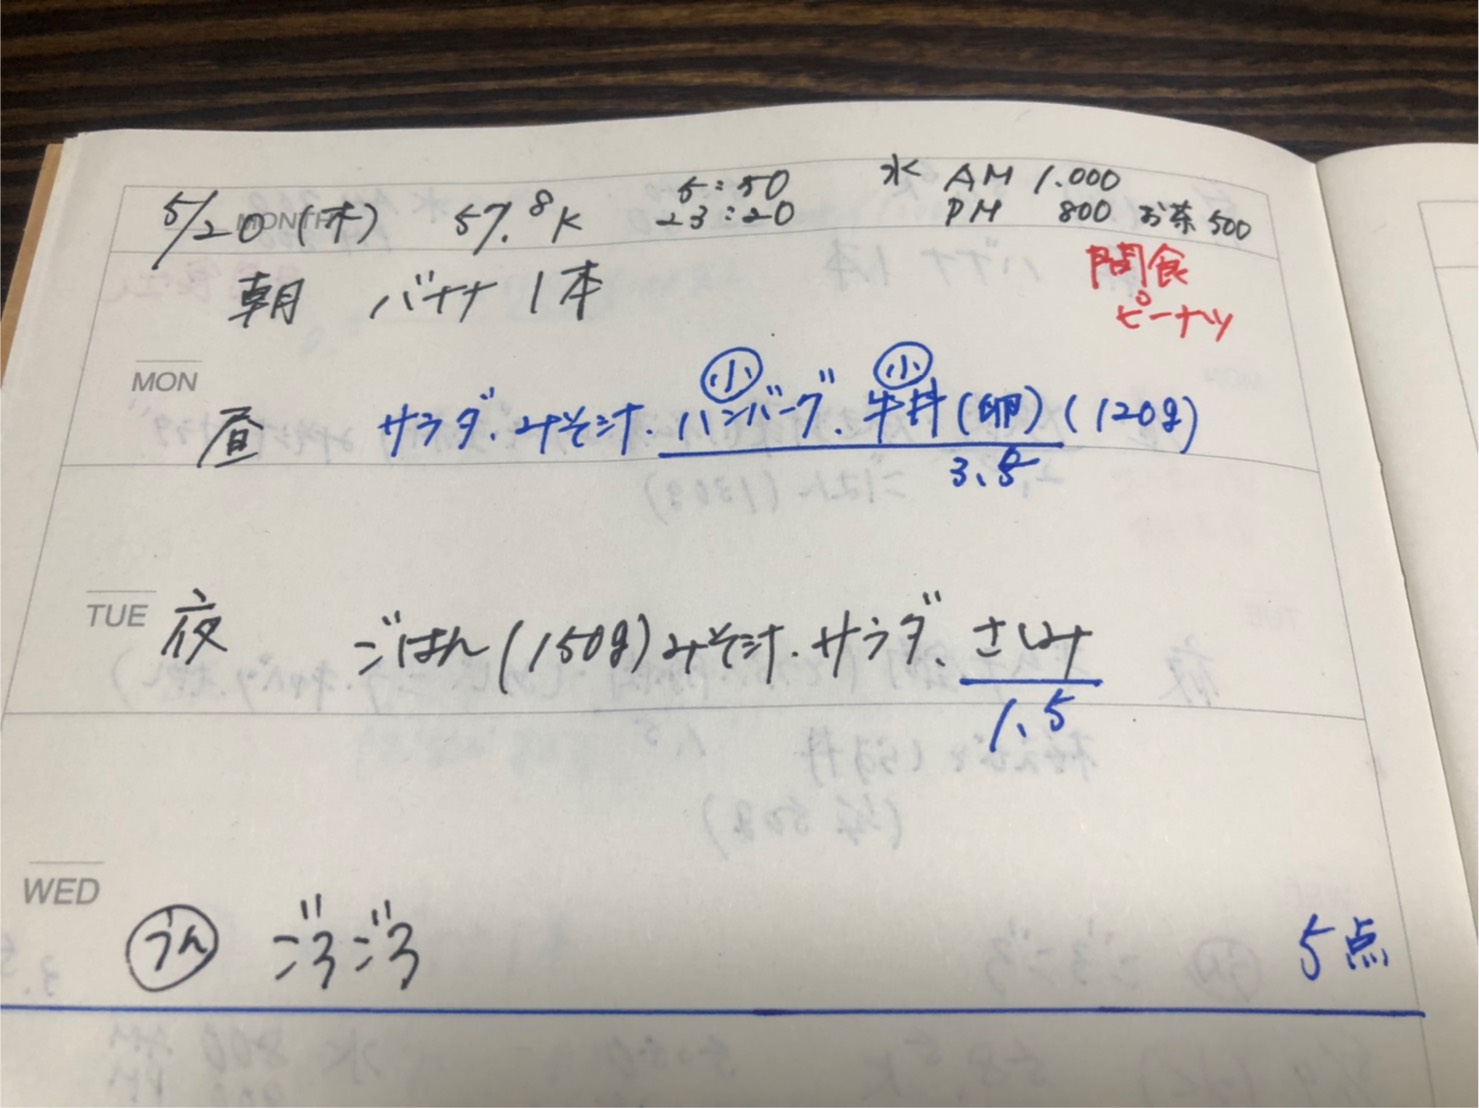 5/20(木) 57.8K 5:50 水 AM 1.000
23:20 PM 800 お茶500
MONTH
朝 バナナ 1本
間食
ピーナツ
MON
小 小
昼 サラダ、みそ汁、ハンバーグ、牛丼(卵)(120g)
3.5
TUE 夜 ごはん(150g)みそ汁、サラダ、さしみ
1.5
WED
うん ごろごろ 5点